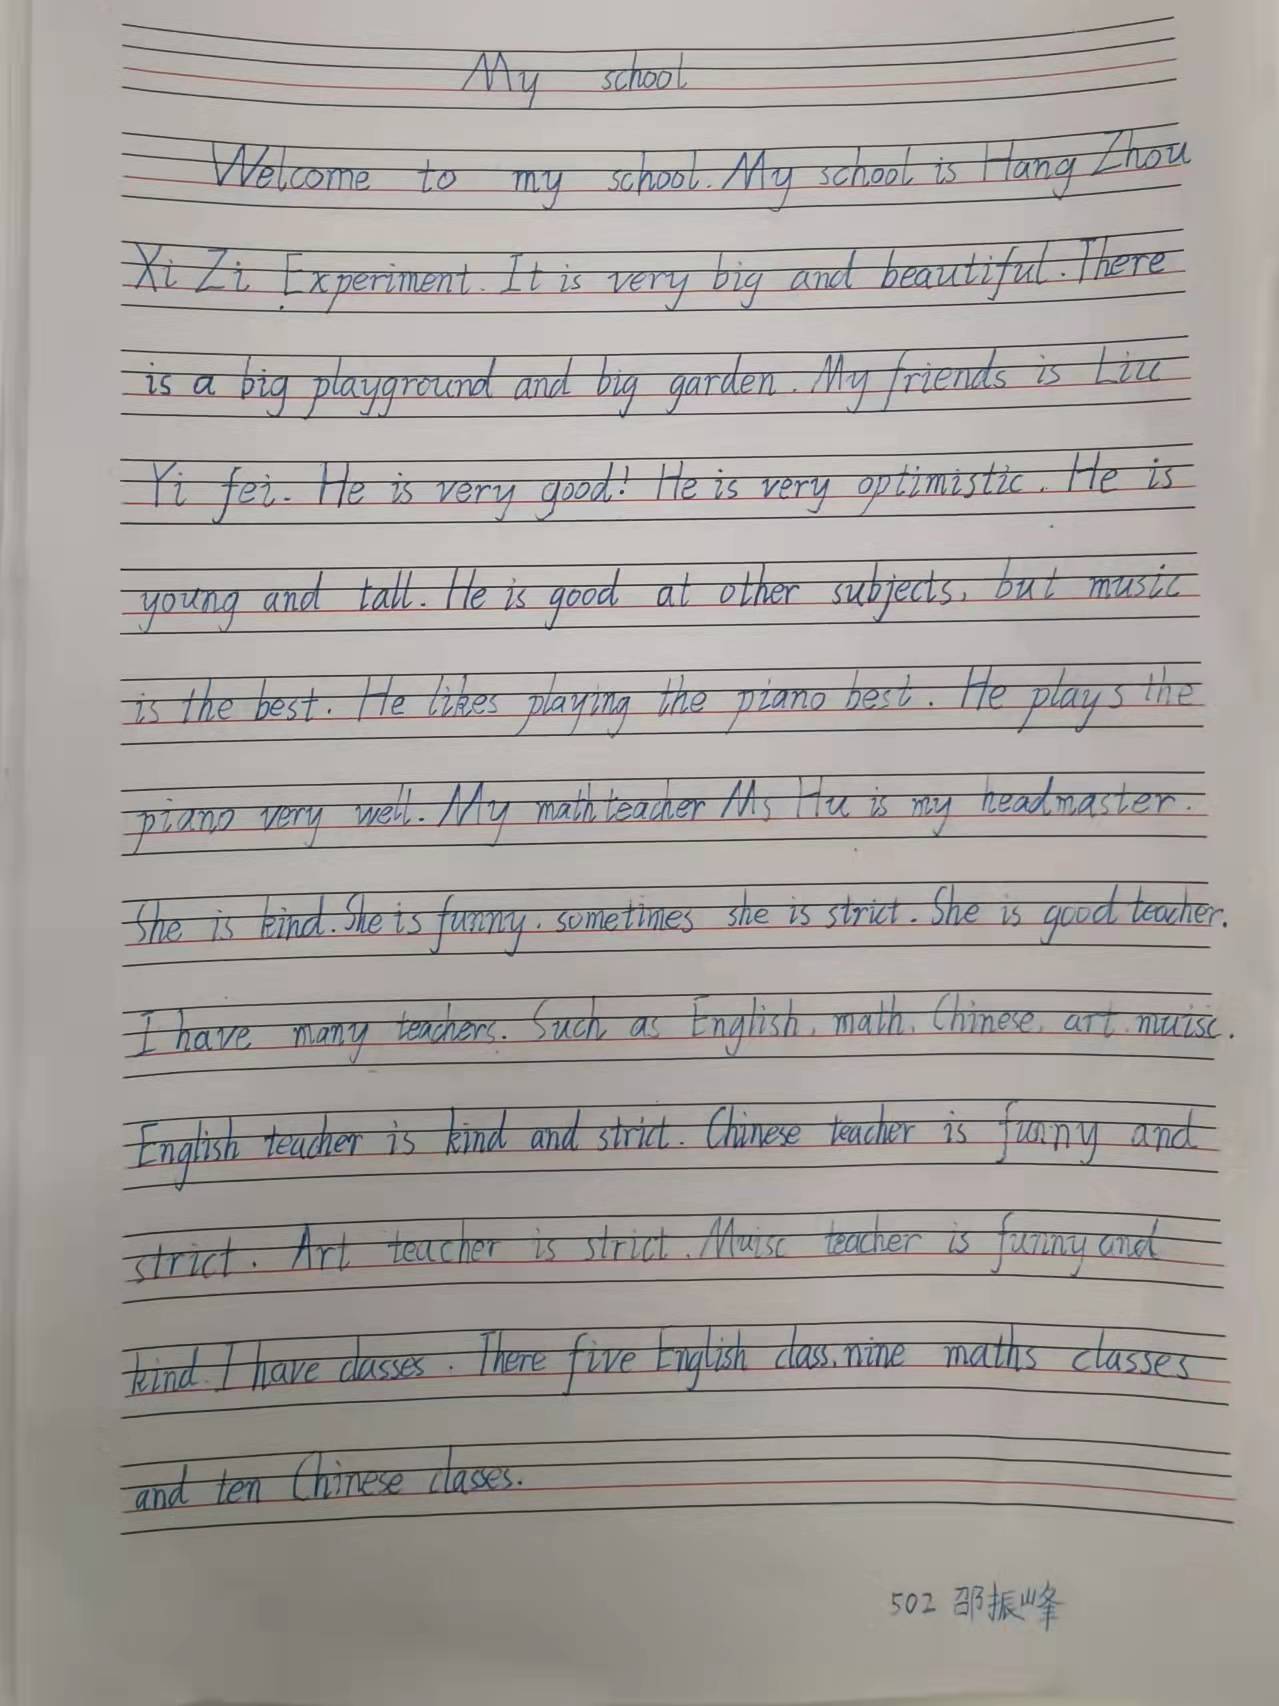 My school
Welcome to my school. My school is Hang Zhou
Xi Zi Experiment. It is very big and beautiful. There
is a big playground and big garden. My friends is Liu
Yi fei. He is very good! He is very optimistic. He is
young and tall. He is good at other subjects, but music
is the best. He likes playing the piano best. He plays the
piano very well. My math teacher Ms Hu is my headmaster.
She is kind. She is funny. sometimes she is strict. She is good teacher.
I have many teachers. Such as English, math, Chinese, art, muisc.
English teacher is kind and strict. Chinese teacher is funny and
strict. Art teacher is strict. Muisc teacher is funny and
kind. I have classes. There five English class, nine maths classes
and ten Chinese classes.
502 邵振峰